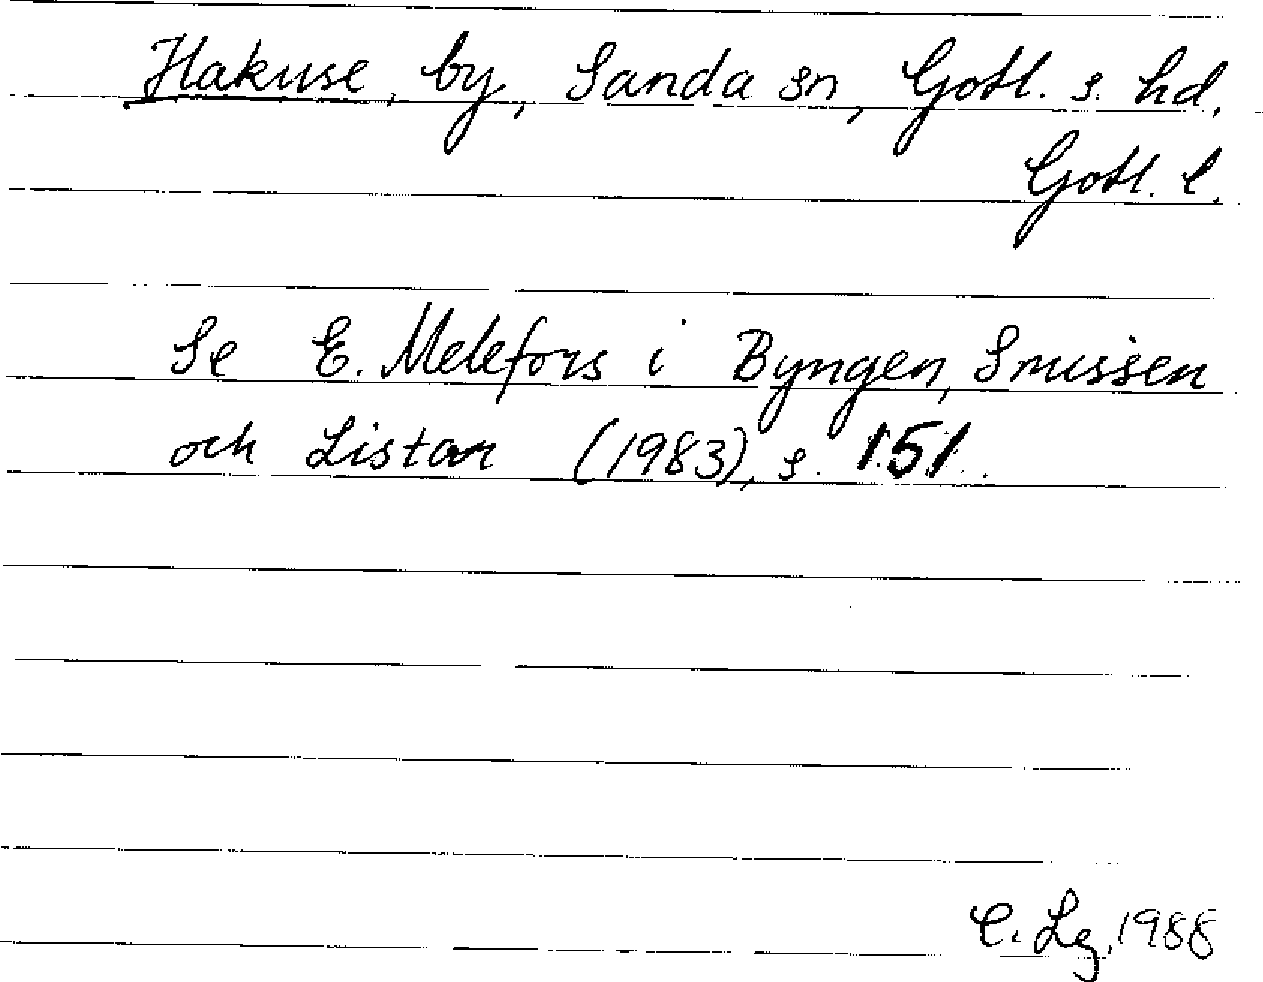 Hakuse, by, Sanda sn, Gotl. s. hd.
Gotl. l.
Se E. Melefors i Byngen, Smissen
och Listar (1983), s. 151.
C. Lg. 1988